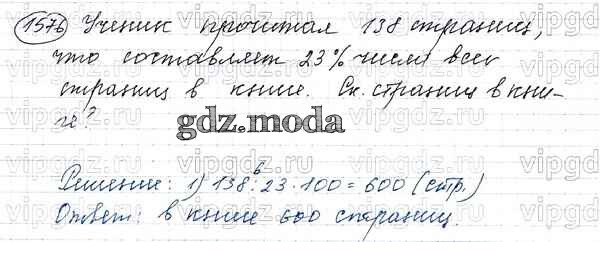 1576 Ученик прочитал 138 страниц,
что составляет 23% числа всех
страниц в книге. Ск. страниц в кни-
ге?
gdz.moda
Решение: 1) 138 : 23 · 100 = 600 (стр.)
6
Ответ: в книге 600 страниц.
vipgdz.ru